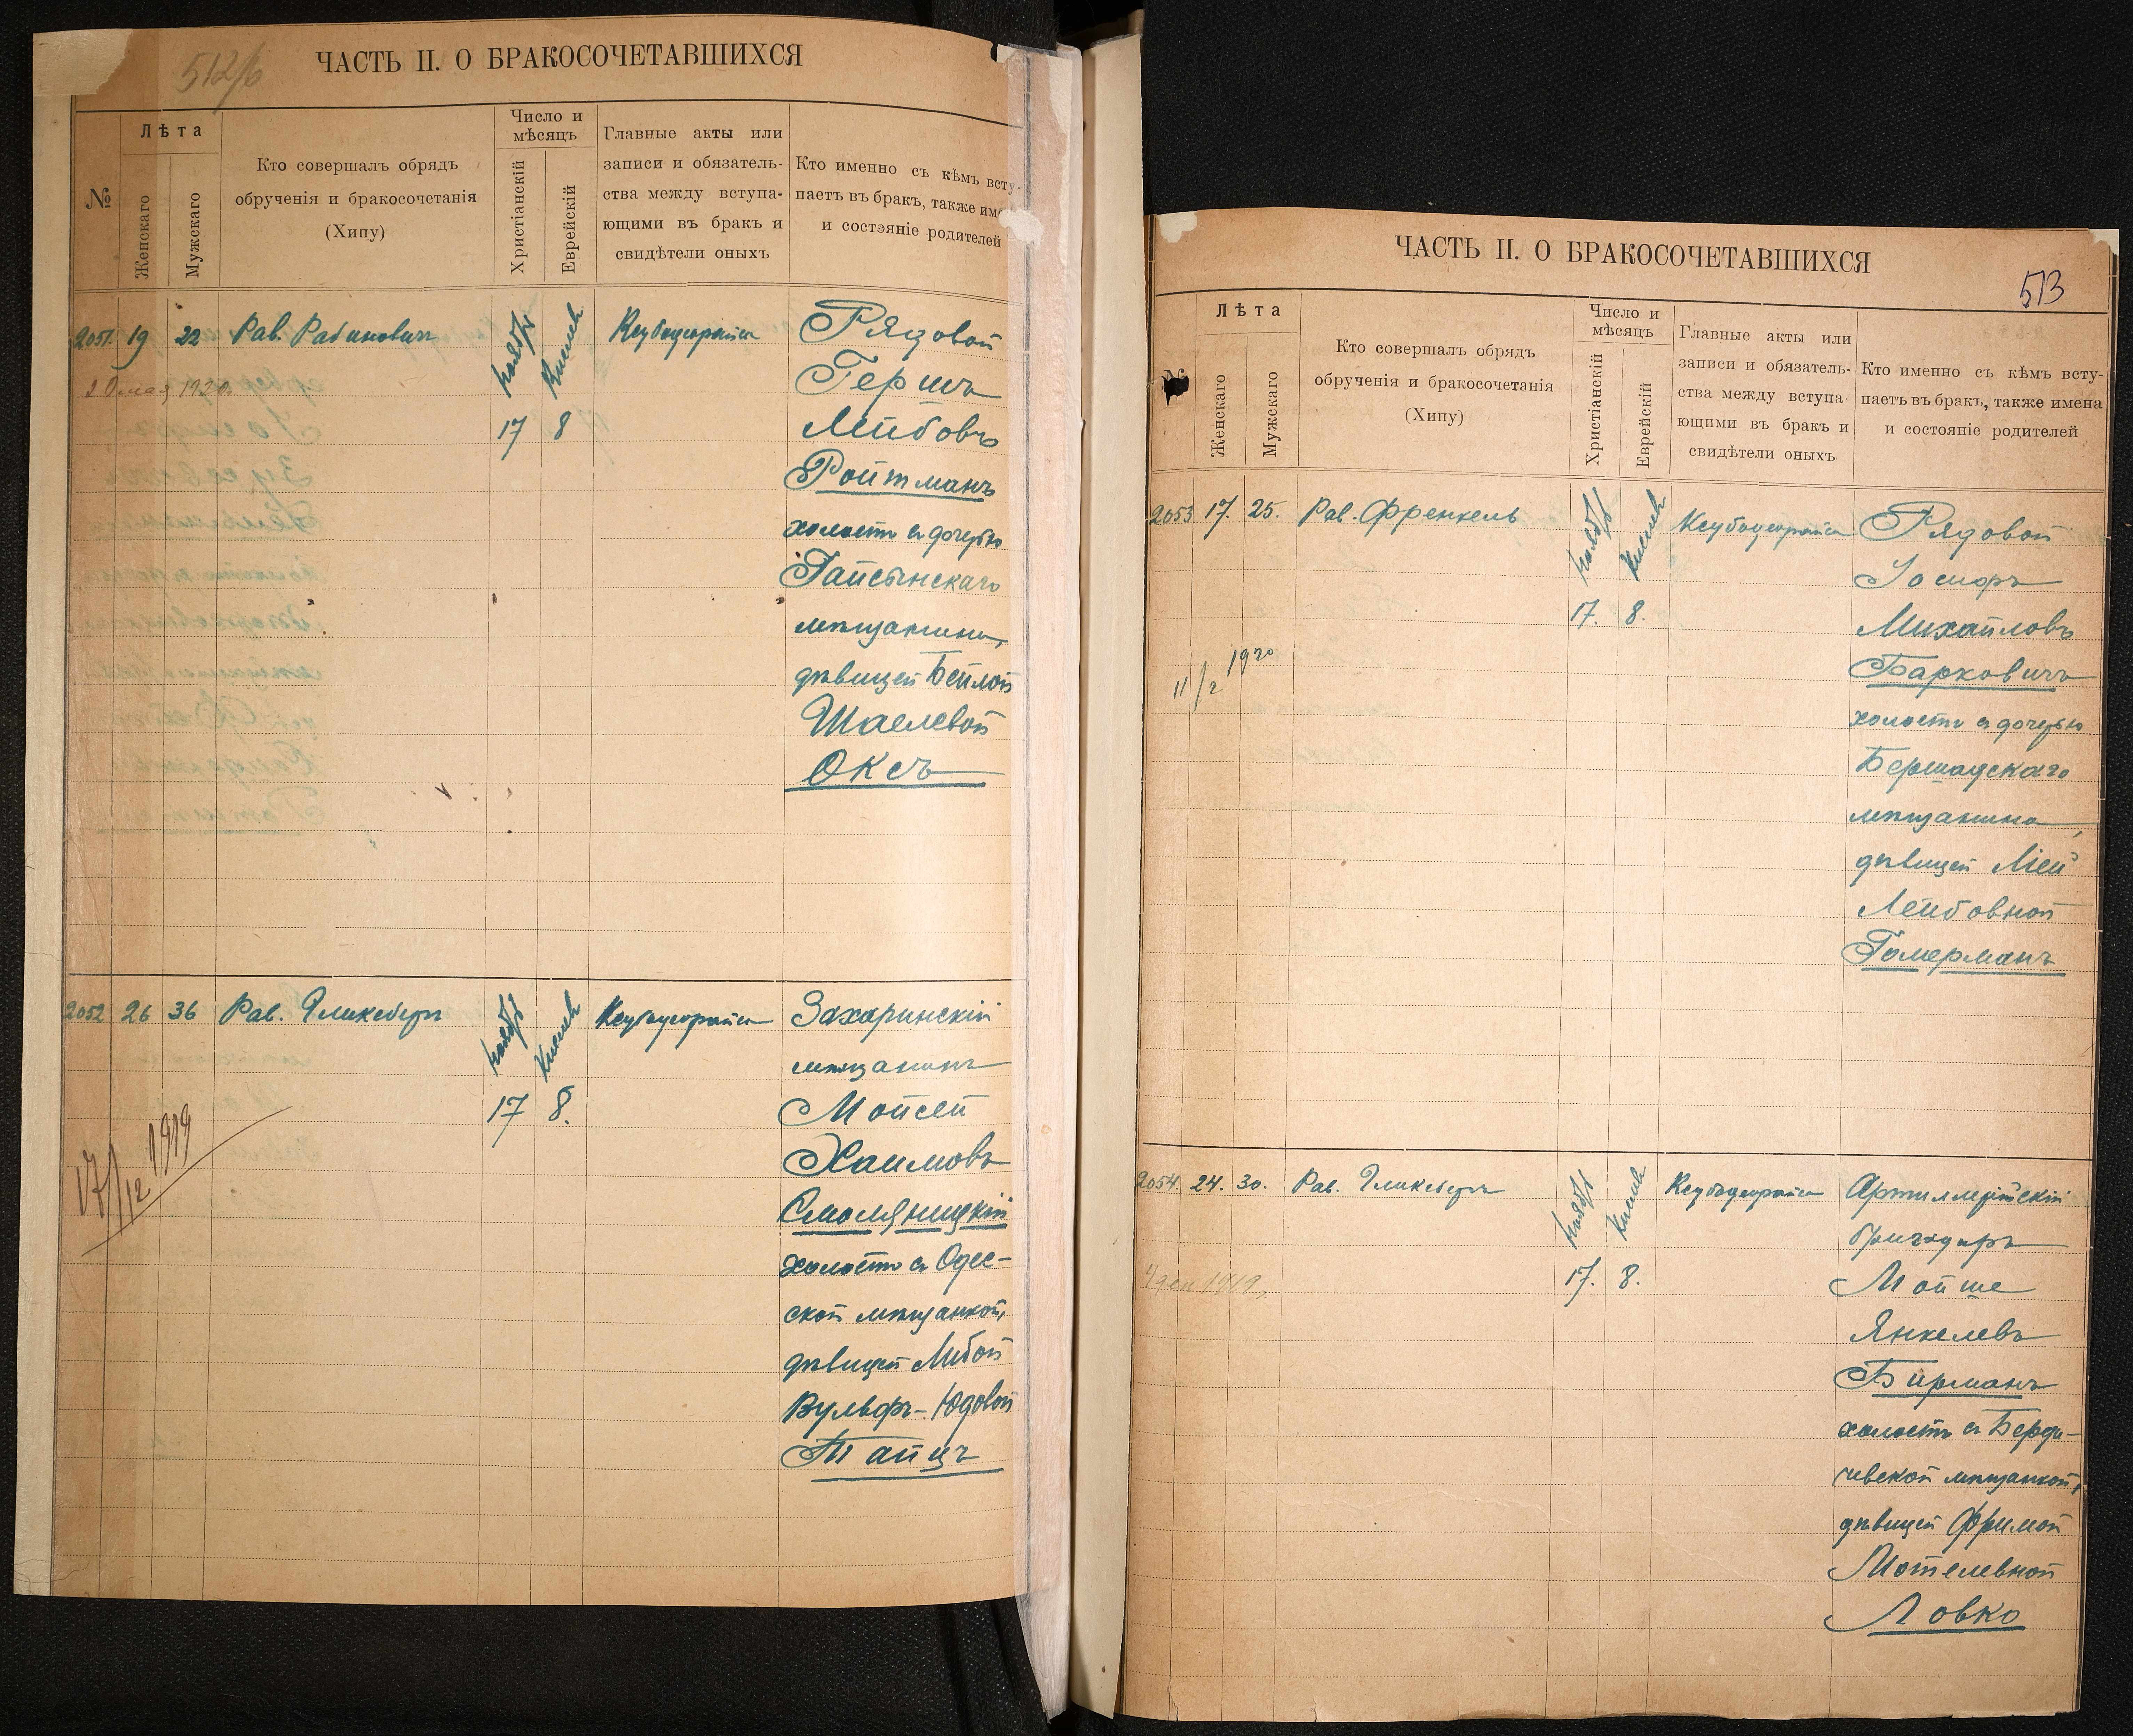 512/б
ЧАСТЬ II. О БРАКОСОЧЕТАВШИХСЯ
№
Лѣта
Женскаго
Мужскаго
Кто совершалъ обрядъ
обрученія и бракосочетанія
(Хипу)
Число и
мѣсяцъ
Христіанскій
Еврейскій
Главные акты или
записи и обязатель-
ства между вступа-
ющими въ бракъ и
свидѣтели оныхъ
Кто именно съ кѣмъ всту-
паетъ въ бракъ, также им
и состояніе родителей
2051. 19 22 Рав. Рабиновичъ
ноябрь
17
Кислев
8
Рядовой
Гершъ
Лейбовъ
Ройтманъ
холостъ съ дочерью
Гайсынскаго
мѣщанина,
дѣвицей Бейлой
Шаелевой
Оксъ
2052 26 36 Рав. Гликсбергъ
ноябрь
17
Кислев
8.
Захаринскій
мѣщанинъ
Мойсей
Хаимовъ
Смоляницкій
холостъ съ Одес-
ской мѣщанкой,
дѣвицей Либой
Вульфъ-Юдовой
Тайцъ
17/12 1919
ЧАСТЬ II. О БРАКОСОЧЕТАВШИХСЯ
513
№
Лѣта
Женскаго
Мужскаго
Кто совершалъ обрядъ
обрученія и бракосочетанія
(Хипу)
Число и
мѣсяцъ
Христіанскій
Еврейскій
Главные акты или
записи и обязатель-
ства между вступа-
ющими въ бракъ и
свидѣтели оныхъ
Кто именно съ кѣмъ всту-
паетъ въ бракъ, также имена
и состояніе родителей
2053 17. 25. Рав. Френкель
ноябрь
17.
Кислев
8.
Рядовой
Іосифъ
Михайловъ
Барковичъ
холостъ съ дочерью
Бершадскаго
мѣщанина,
дѣвицей Ліей
Лейбовной
Гомерманъ
11/2 1920
2054. 24. 30. Рав. Гликсбергъ
ноябрь
17.
Кислев
8.
Артиллерійскій
Мойше
Янкелевъ
Бирманъ
холостъ съ Берди-
чевской мѣщанкой,
дѣвицей Фримой
Мотелевной
Ловко